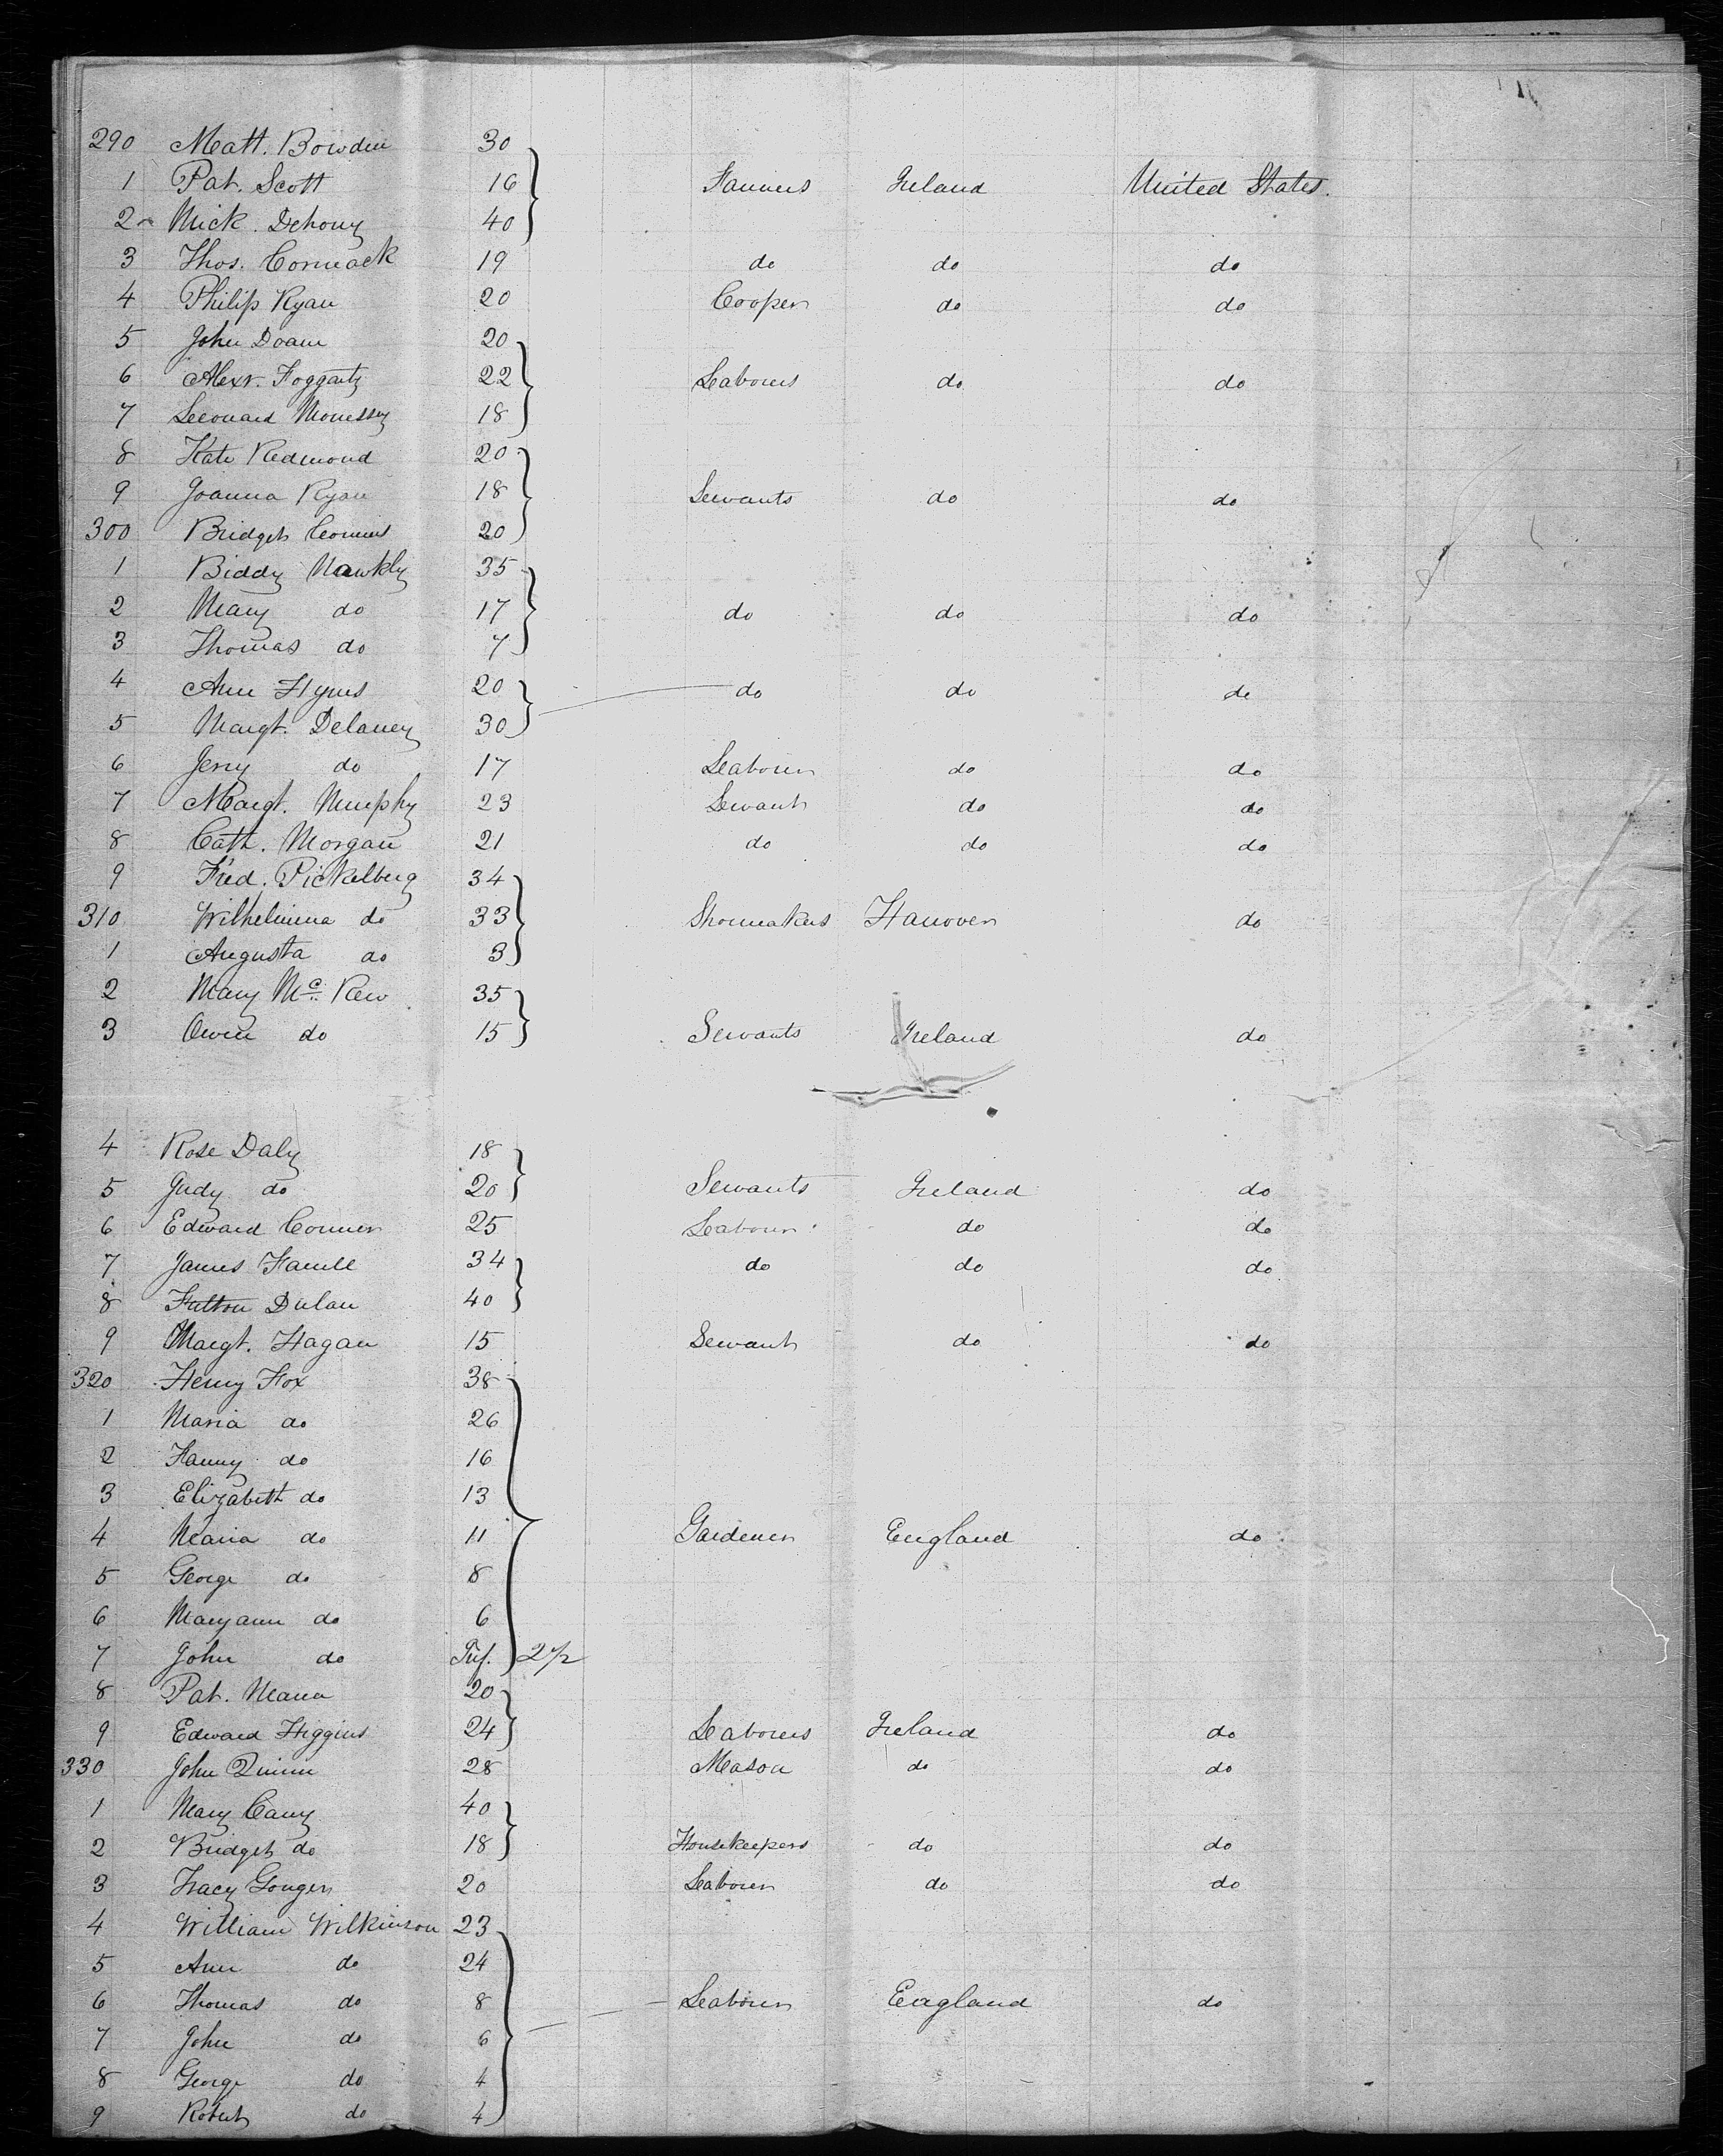 290 Matt. Bowden 30
1 Pat. Scott 16 Farmers Ireland United States.
2 Mick. Dehony 40
3 Thos. Cormack 19 do do do
4 Philip Ryan 20 Cooper do do
5 John Doam 20
6 Alexr. Foggarty 22 Labourers do do
7 Leonard 18
8 Kate Redmond 20
9 Joanna Ryan 18 Servants do do
300 Bridget 20
1 Biddy Nawkly 35
2 Mary do 17 do do do
3 Thomas do 7
4 Ann Hynes 20 do do do
5 Margt. Delaney 30
6 Jerry do 17 Labourer do do
7 Margt. Murphy 23 Servant do do
8 Cath. Morgan 21 do do do
9 Fred. Pickelberg 34
310 Wilhelmina do 33 Shoemakers Hanover do
1 Augusta do 3
2 Mary Mc. Kew 35
3 Owen do 15 Servants Ireland do
4 Rose Daly 18
5 Judy do 20 Servants Ireland do
6 Edward Conner 25 Labourer do do
7 James Hamill 34 do do do
8 Fulton Dulan 40
9 Margt. Hagan 15 Servant do do
320 Henry Fox 38
1 Maria do 26
2 Fanny do 16
3 Elizabeth do 13
4 Maria do 11 Gardener England do
5 George do 8
6 Maryann do 6
7 John do Inf. 2/2
8 Pat. Mara 20
9 Edward Higgins 24 Labourers Ireland do
330 John Quinn 28 Mason do do
1 Mary Carry 40
2 Bridget do 18 Housekeepers do do
3 Tracy Gonger 20 Labourer do do
4 William Wilkinson 23
5 Ann do 24
6 Thomas do 8 Labourer England do
7 John do 6
8 George do 4
9 Robert do 4